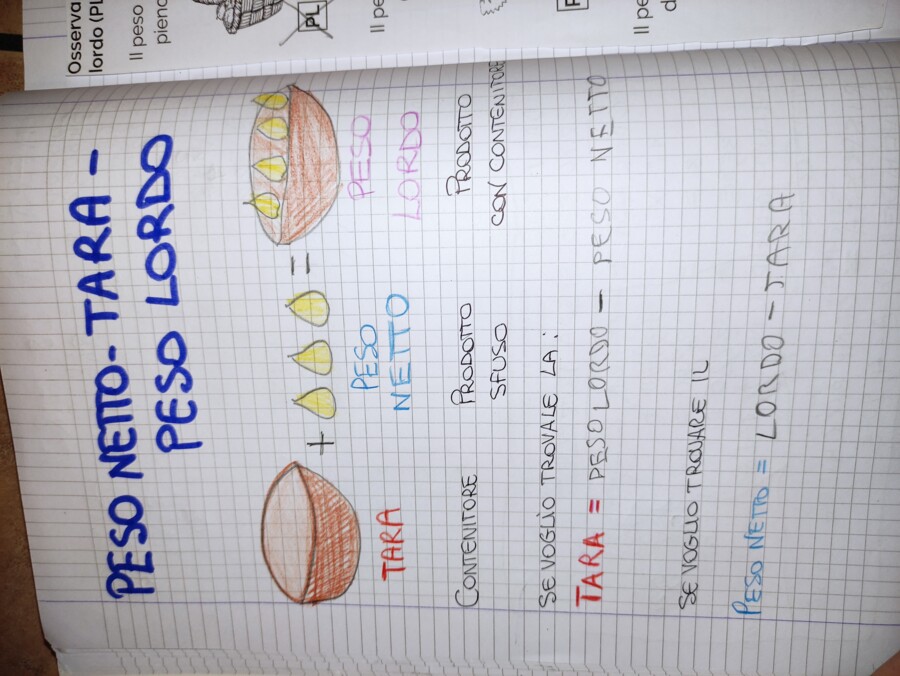 PESO NETTO - TARA -
PESO LORDO
+ =
TARA
PESO
NETTO
PESO
LORDO
CONTENITORE
PRODOTTO
SFUSO
PRODOTTO
CON CONTENITORE
SE VOGLIO TROVALE LA:
TARA = PESO LORDO - PESO NETTO
SE VOGLIO TROVARE IL
PESO NETTO = LORDO - TARA
Osserva
lordo (PL
Il peso
pieno
PL
Il pe
Il pe
d